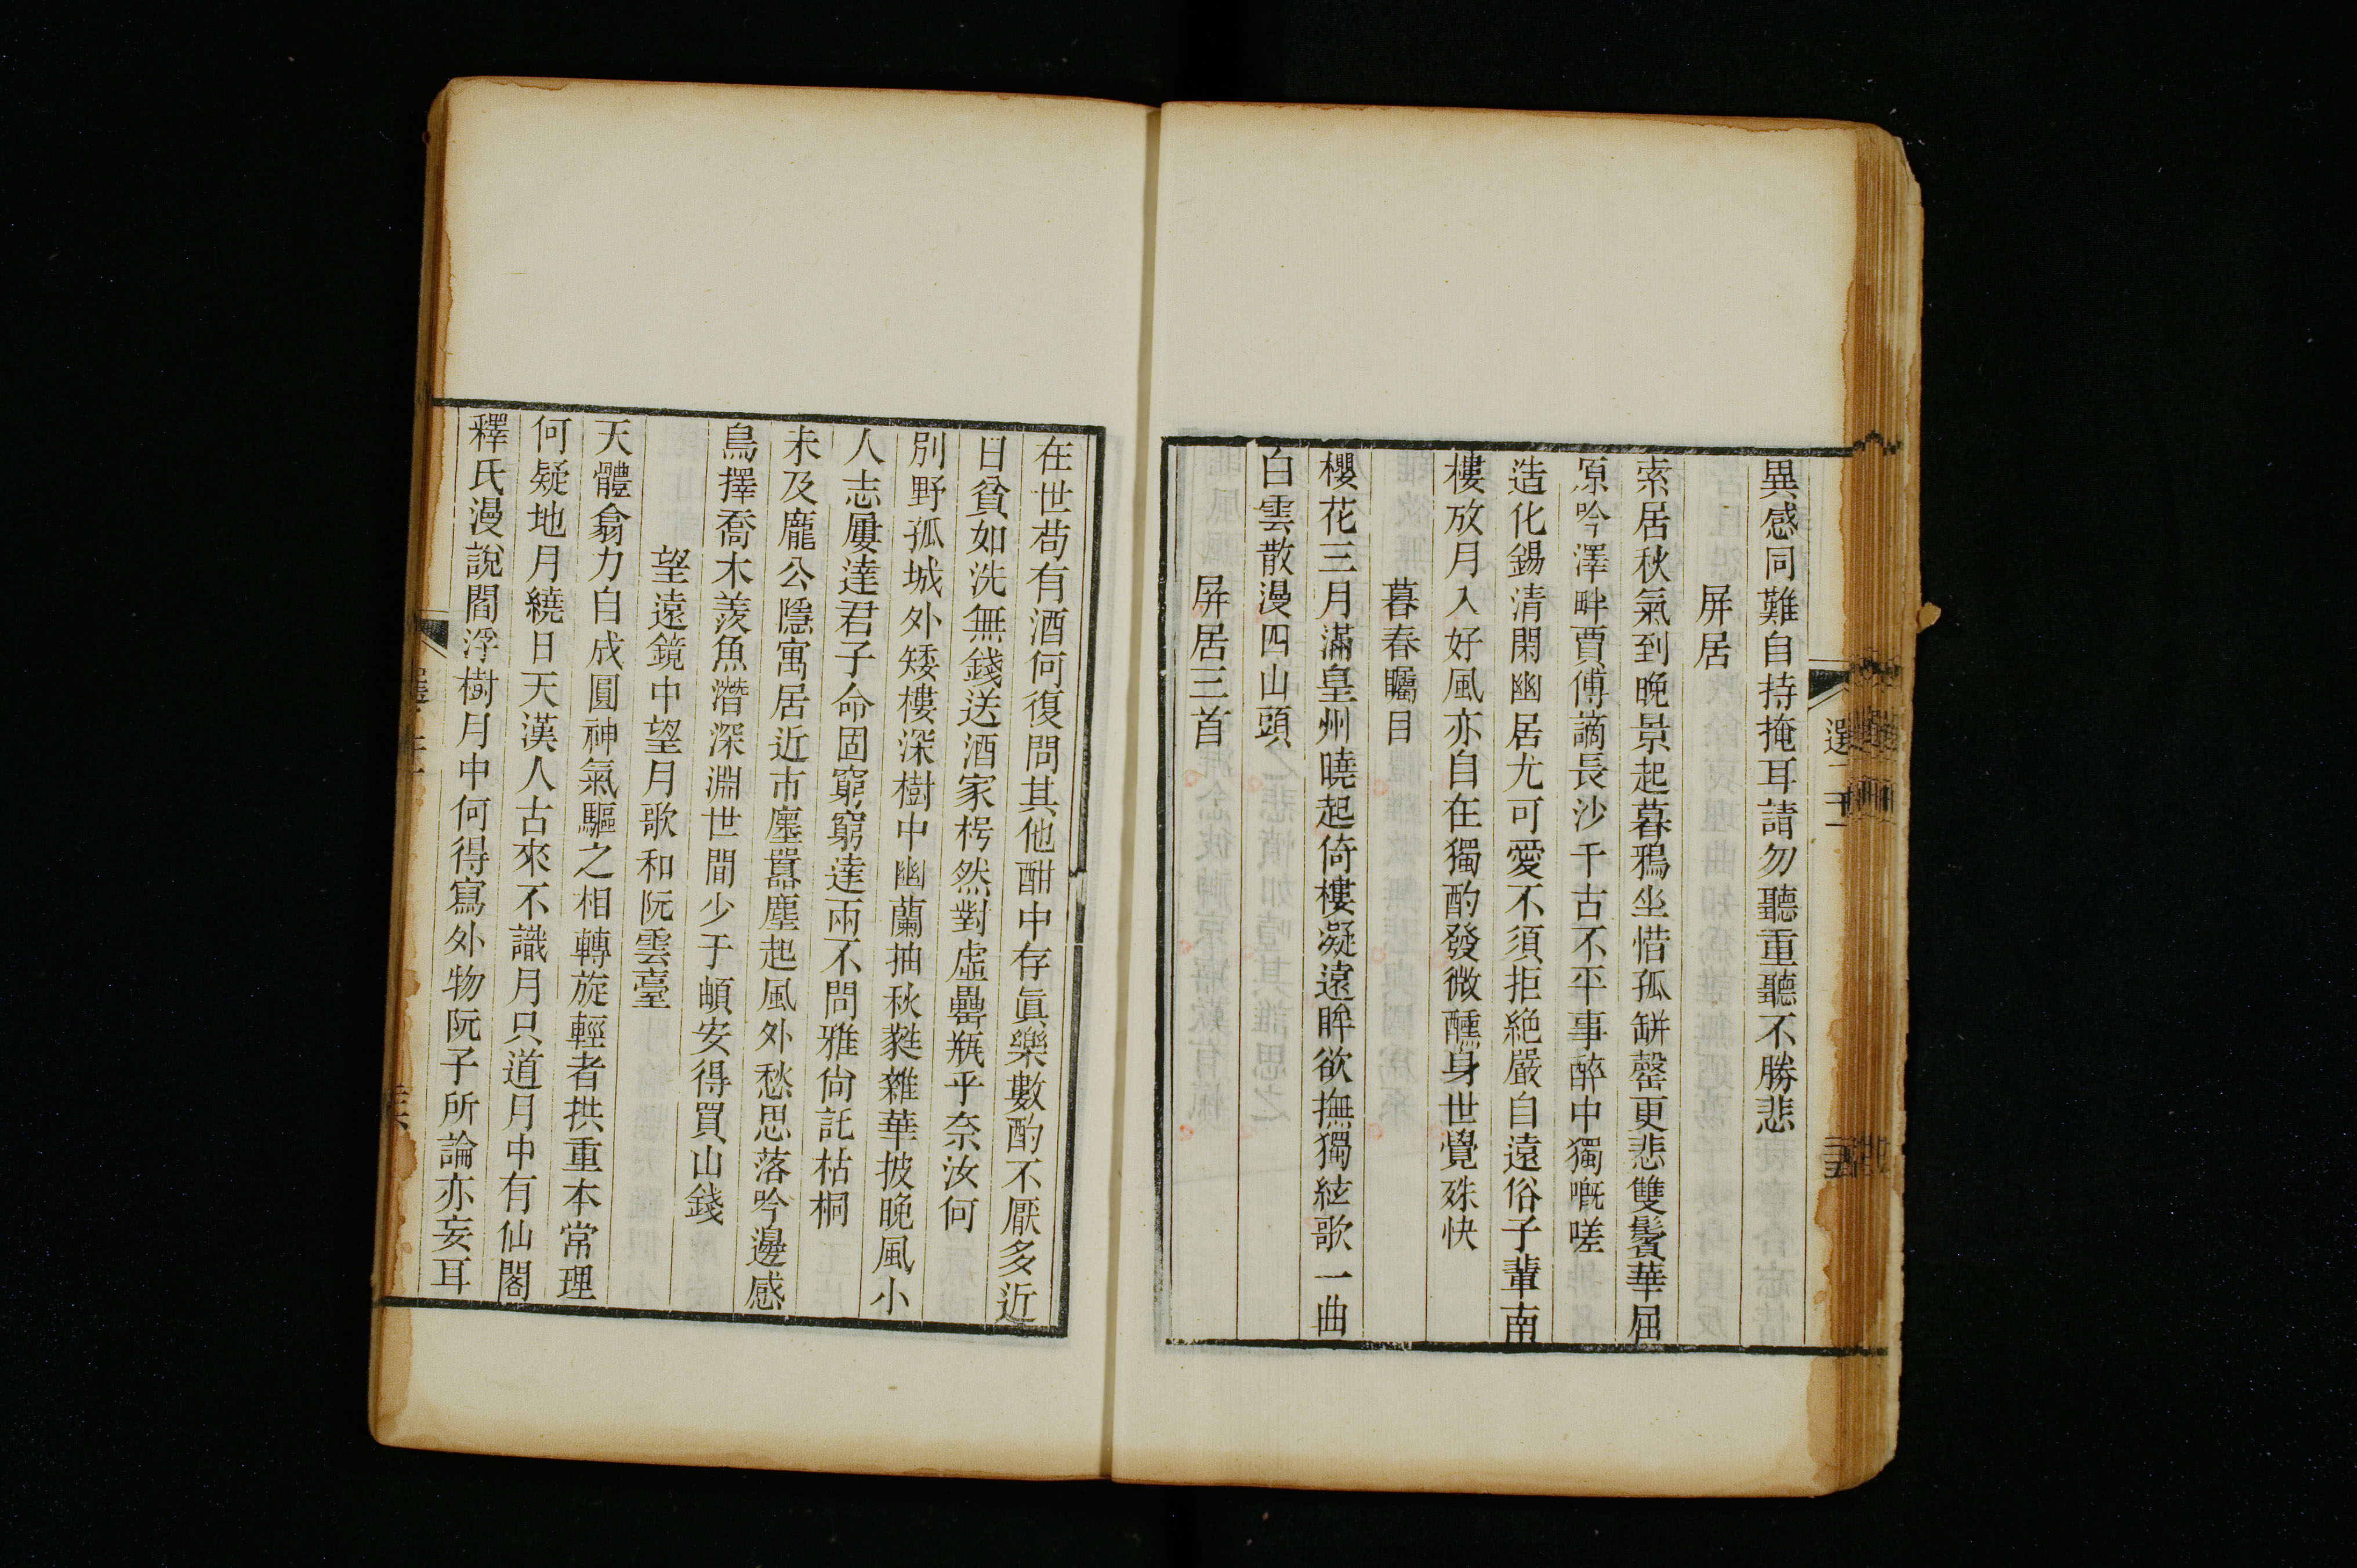 異感同難自持掩耳請勿聽重聽不勝悲
屛居
索居秋氣到晚景起暮鴉坐惜孤缾罄更悲雙鬢華屈
原吟澤畔賈傅謫長沙千古不平事醉中獨嘅嗟
造化錫清閑幽居尤可愛不須拒絶嚴自遠俗子輩南
樓放月入好風亦自在獨酌發微醺身世覺殊快
暮春矚目
櫻花三月滿皇州曉起倚樓凝遠眸欲撫獨絃歌一曲
白雲散漫四山頭
屛居三首
在世苟有酒何復問其他酣中存眞樂數酌不厭多近
日貧如洗無錢送酒家枵然對虛罍瓶乎奈汝何
別野孤城外矮樓深樹中幽蘭抽秋蕤雜華披晚風小
人志屢達君子命固窮窮達兩不問雅尙託枯桐
未及龐公隱寓居近市廛囂塵起風外愁思落吟邊感
鳥擇喬木羨魚潛深淵世間少于頔安得買山錢
望遠鏡中望月歌和阮雲臺
天體翕力自成圓神氣驅之相轉旋輕者拱重本常理
何疑地月繞日天漢人古來不識月只道月中有仙閣
釋氏漫說閻浮樹月中何得寫外物阮子所論亦妄耳